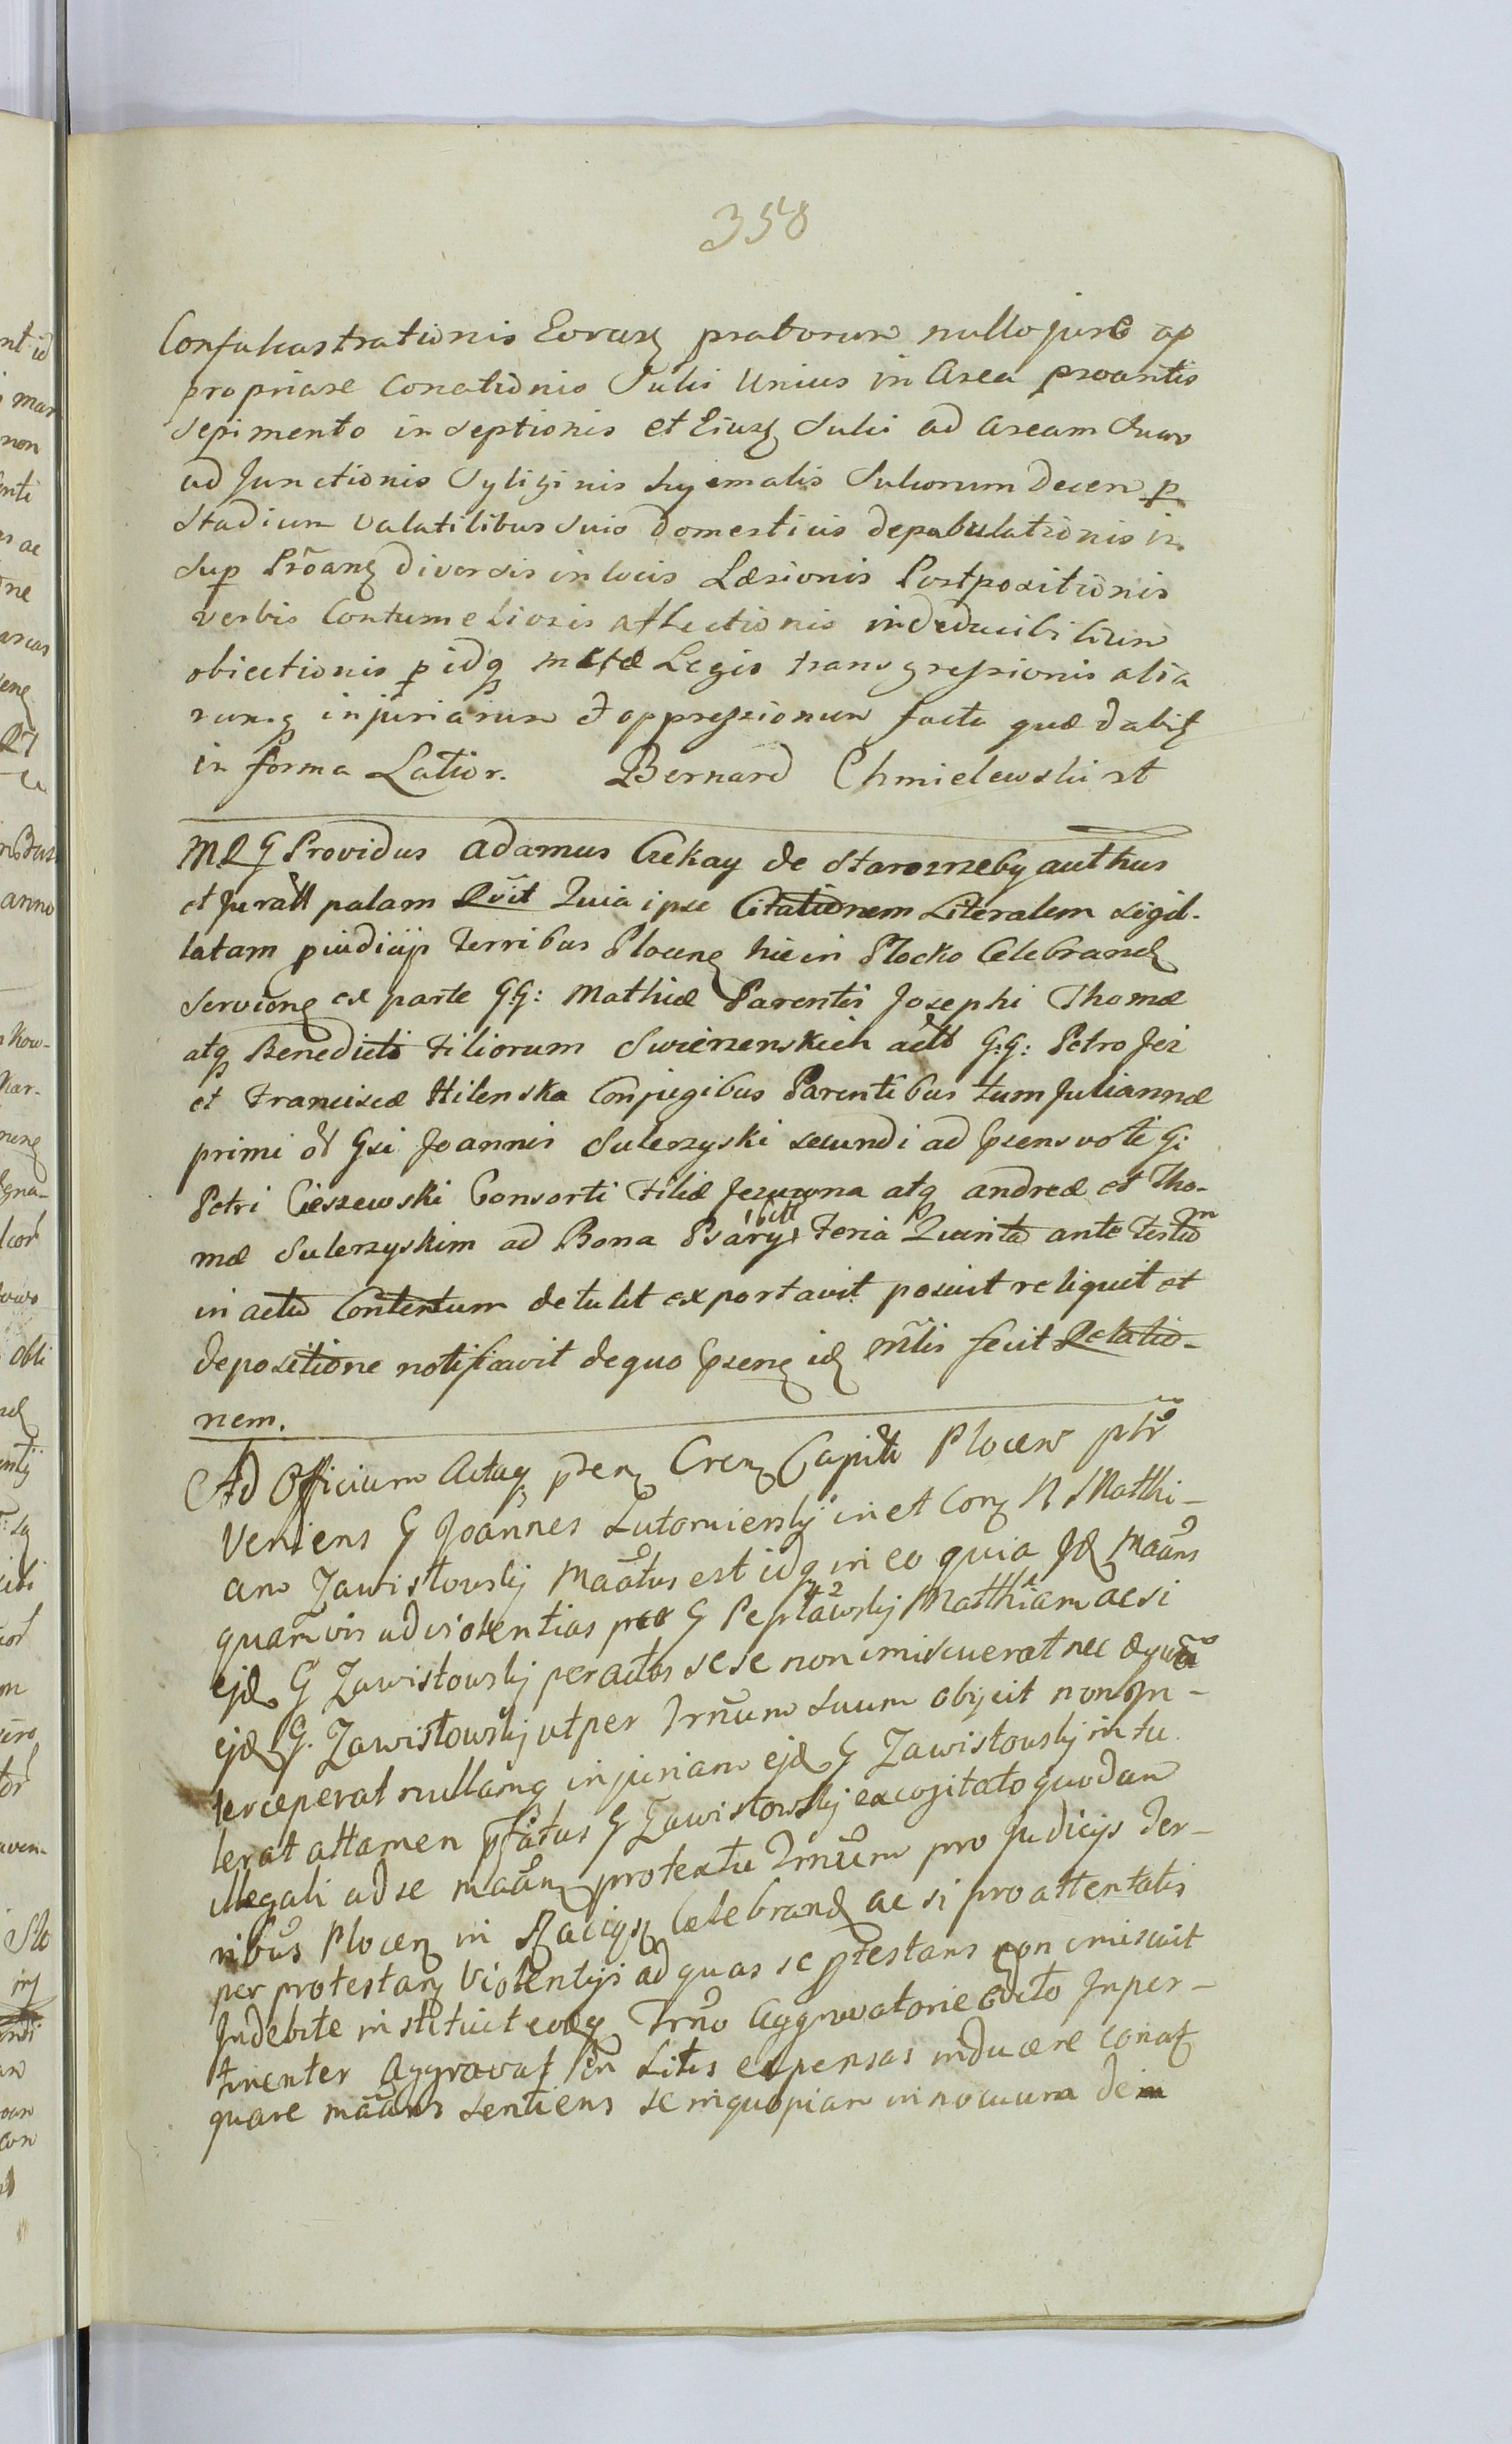 358
Confalcastrationis Eorum pratorum nullo jure ap
propriare Conationis Sulci Unius in Area proantis
Sepimento in septionis et Eiusq Sulci ad Aream Suam
ad Junctionis Syliginis hyemalis Sulcorum Decem p
Stadium Valatilibus Suis Domesticis depabulationis in
Sup Prõanq diversis in locis Læsionis Postpositionis
verbis Contumeliosis affectionis indeducibilium
obiectionis p idq mctæ Legis transgressionis alia
rumq injuriarum & oppressionum facta quæ dabit
in forma Latior. Bernard Chmielewski st
M R G Providus Adamus Czekay de Starozrzeby authus
et Juratt palam Rvit Quia ipse Citationem Literalem Sigil-
latam p iudicijs Terribus Plocenq hic in Płocko Celebrand
Serviong ex parte G:G: Mathiæ Parentis Josephi Thomæ
atq Benedicti Filiorum Swierzenskich actt G:G: Petro Jez
et Franciscæ Hilenska Conjugibus Parentibus tum Juliannæ
primi ol Gsi Joannis Sulerzyski secundi ad Gsens voti G:
Petri Cieszewski Consorti Filiæ Jezuwna atq Andreæ et Tho-
mæ Sulerzyskim ad Bona Psáry Feria Quinta ante Festum
in actu Contentum detulit exportavit posuit reliquit et
depositione notificavit de quo Gsenq idq mlis fecit Relatio-
nem.
Ad Officium Actaq pden Cren Capitt Plocen pltr
Veniens G Joannes Lutomierskj in et Conq N Matthi-
am Zawistowskj Maātus est idq in eo quia Jd Maāns
quamvis ad violentias per G Peptawskj Matthiam ac si
ejd G Zawistowskj peractas sese non imiscuerat nec equã
ejd G. Zawistowskj ut per Trnum suum obijcit non In-
terceperat nullamq injuriam ejd G Zawistowskj intu
lerat attamen pfatus G Zawistowskj excogitato quodam
illegali ad se maān protextu Trnum pro Judicijs Ter-
ribus Plocen in Raciąż Celebrand ac si pro attentatis
per protestan Violentijs ad quas se ptestans non imiscuit
Indebite instituit eoq Trno Aggravatorie Edito Inper-
tinenter Aggravat in Litis expensas inducere conat
quare maāns sentiens se in quopiam innocuum dem